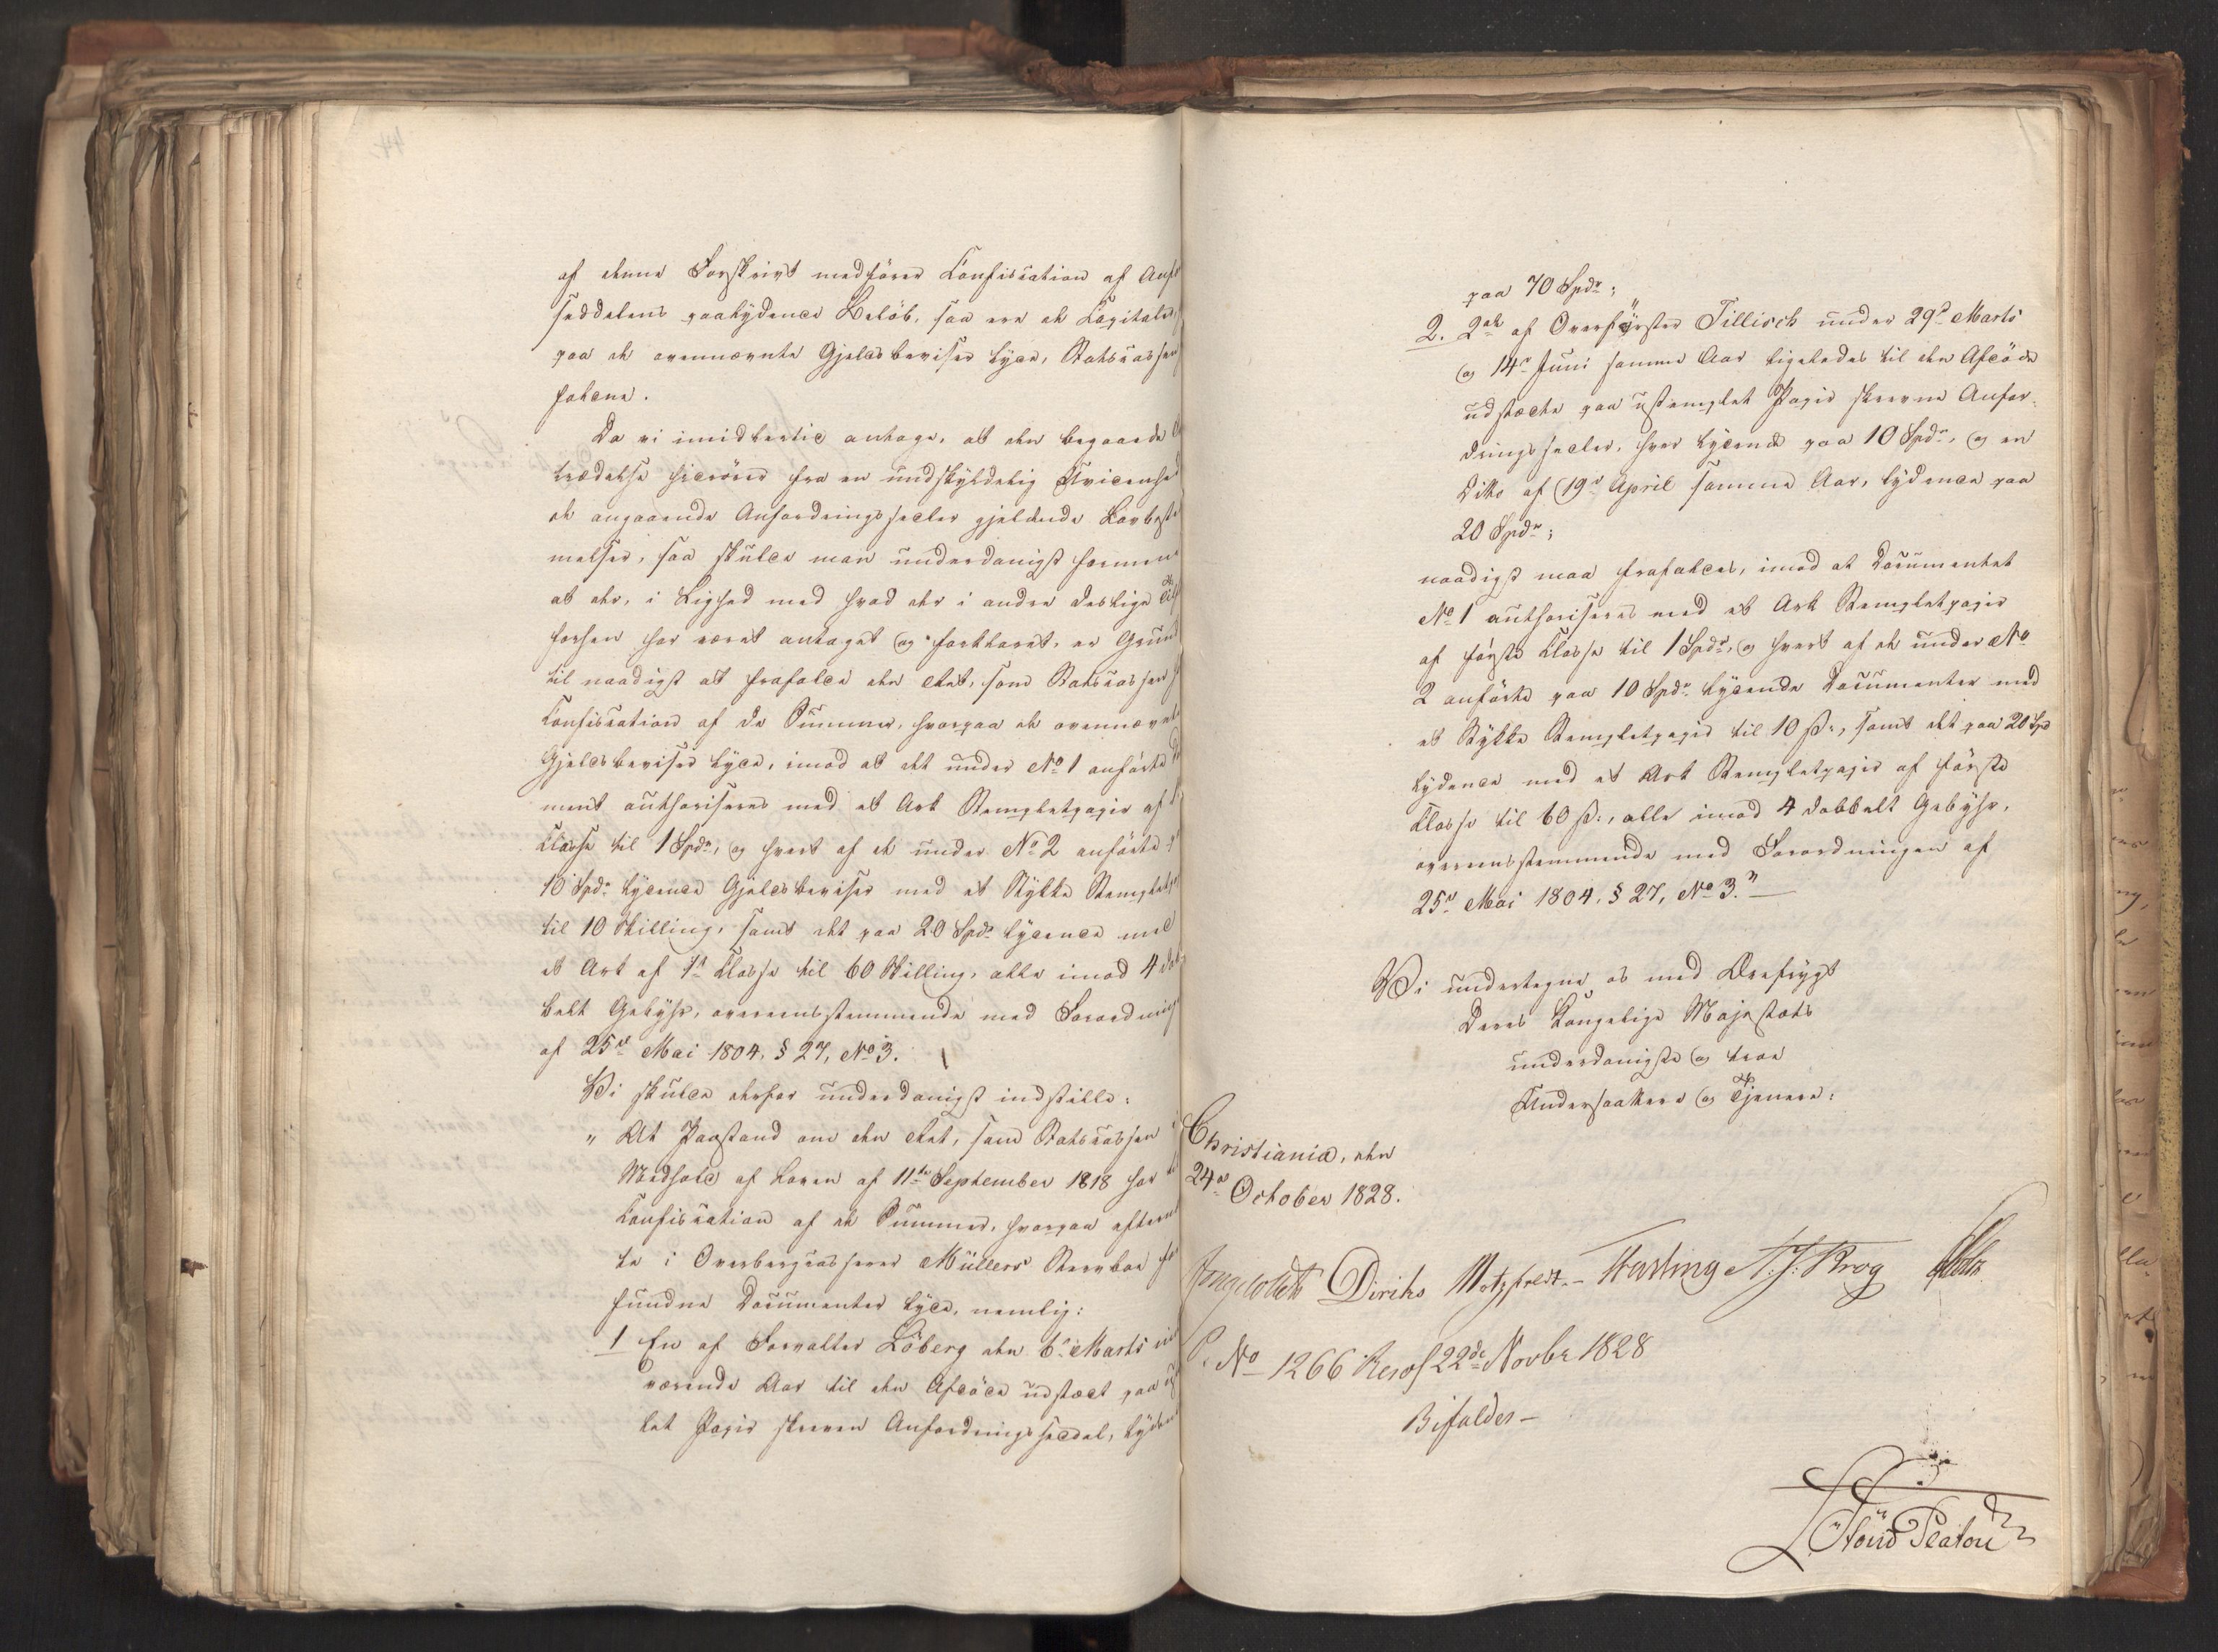 af denne Forskrivt medfører Confiscation af Anfor
seddelens paalydende Beløb, saa ere de Capitaler,
paa de ovennævnte Gjeldsbeviser lyde, Statscassen
faldne.
Da vi imidlertid antage, at den begaaede O
trædelse hidrører fra en undskyldelig Uvidenhed
de angaaende Anfordringssedler gjeldende Lovbeste
melser, saa skulde man underdanigst formene
at der, i Lighed med hvad der i andre deslige Til
fælde har været antaget og forklaret, er Grund
til naadigst at frafalde den Ret, som Statscassen
Confiscation af de Summer, hvorpaa de ovennævnte
Gjeldsbeviser lyde, imod at det under No 1 anførte Do
ment authoriseres med et Ark Stempletpapir af 1
Classe til 1 Spdr, og hvert af de under No 2 anførte
10 Spdr lydende Gjeldsbeviser med et Stykke Stempletpa
til 10 Skilling, samt det paa 20 Spdr lydende med
et Ark af 1ste Classe til 60 Skilling, alle imod 4 dob
belt Gebyhr, overeensstemmende med Forordning
af 25de Mai 1804, § 27, No 3.
Vi skulde derfor underdanigst indstille:
" At Paastand om den Ret, som Statscassen
Medhold af Loven af 11te September 1818 har til
Confiscation af de Summer, hvorpaa efternævn
te i Overbergcasserer Müllers Stervboe fore
fundne Documenter lyde, nemlig:
1 En af Forvalter Löberg den 6te Marts
værende Aar til den Afdøde udstædt paa us
let Papir skreven Anfordringsseddel, lydende
paa 70 Spdr;
2. 2de af Overførster Tillisch under 29de Marts
og 14de Juni samme Aar ligeledes til den Afdøde
udstædte paa ustemplet Papir skrevne Anfor-
dringssedler, hver lydende paa 10 Spdr, og en
Ditto af 19de April samme Aar, lydende paa
20 Spdr;
naadigst maa frafaldes, imod at Documentet
No 1 authoriseres med et Ark Stempletpapir
af første Classe til 1 Spdr, og hvert af de under No
2 anførte paa 10 Spdr lydende Documenter med
et Stykke Stempletpapir til 10 ß, samt det paa 20 Spd
lydende med et Ark Stempletpapir af første
Classe til 60 ß, alle imod 4 dobbelt Gebyhr,
overeensstemmende med Forordningen af
25de Mai 1804, § 27, No 3."
Vi undertegne os med Ærefrygt
Deres Kongelige Majestæts
underdanigste og troe
Undersaattere og Tjenere:
Christiania, den
24de October 1828.
Diriks Motzfeldt. Fasting N. J. Krog
No 1266 Resol 22de Novbr 1828
Bifaldes -
Platou